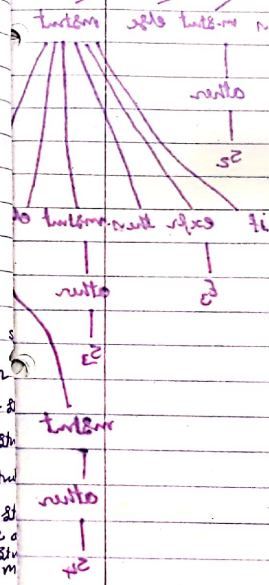 n mstmt else mstmt
other
S2
if expr then mstmt el
E3 other
S3
mstmt
other
S4